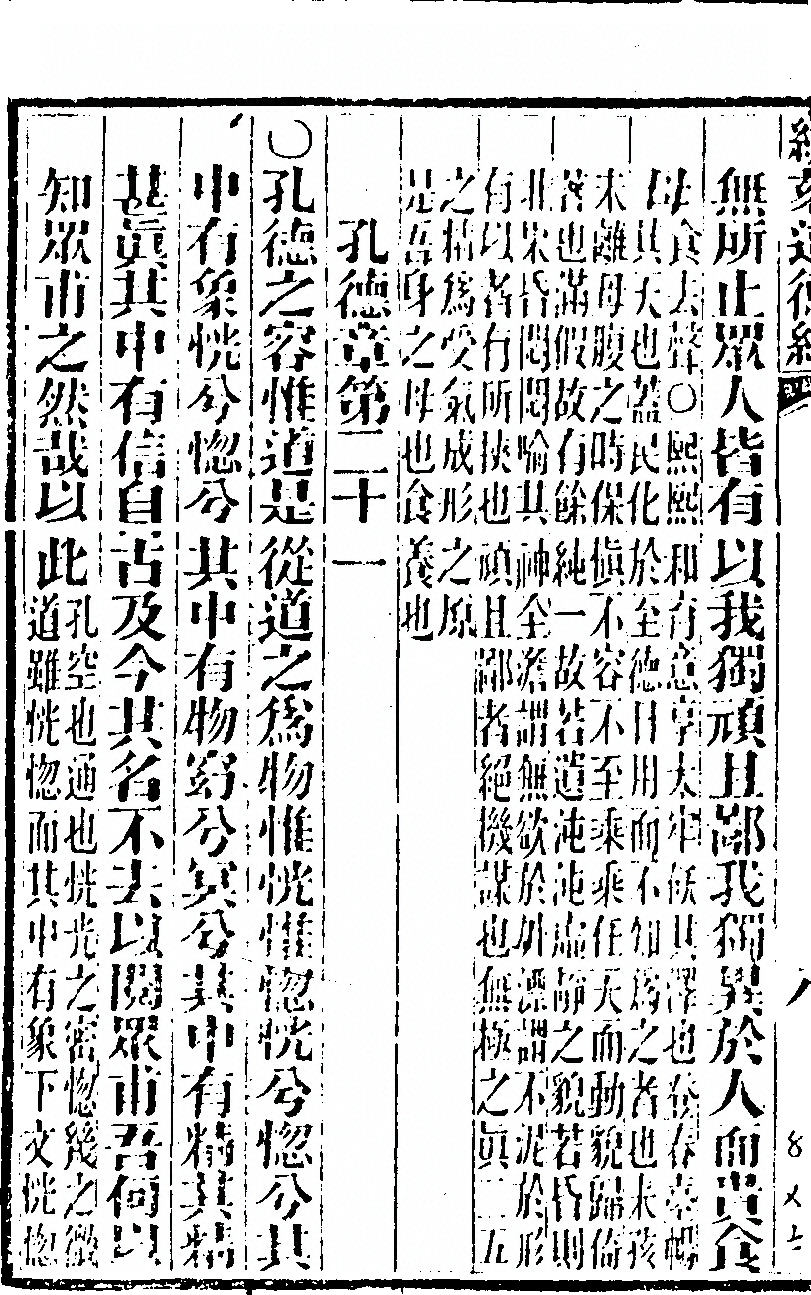 道德經 八
無所止眾人皆有以我獨頑且鄙我獨異於人而貴食
母食去聲○熙熙和有意享太牢沃其澤也登春臺暢
以其天也蓋民化於至德日用而不知爲之者也未孩
未離母腹之時保愼不容不至乘乘任天而動貌歸倚
著也滿假故有餘純一故若遺沌沌虛靜之貌若昏則
非果昏悶悶喻其神全澹謂無欲於外漂謂不泥於形
有以者有所挾也頑且鄙者絕機謀也無極之眞二五
之精爲受氣成形之原
是吾身之母也食養也
孔德章第二十一
○孔德之容惟道是從道之爲物惟恍惟惚恍兮惚兮其
中有象恍兮惚兮其中有物窈兮冥兮其中有精其精
甚眞其中有信自古及今其名不去以閱眾甫吾何以
知眾甫之然哉以此
孔空也通也恍光之密惚幾之微
道雖恍惚而其中有象下文恍惚